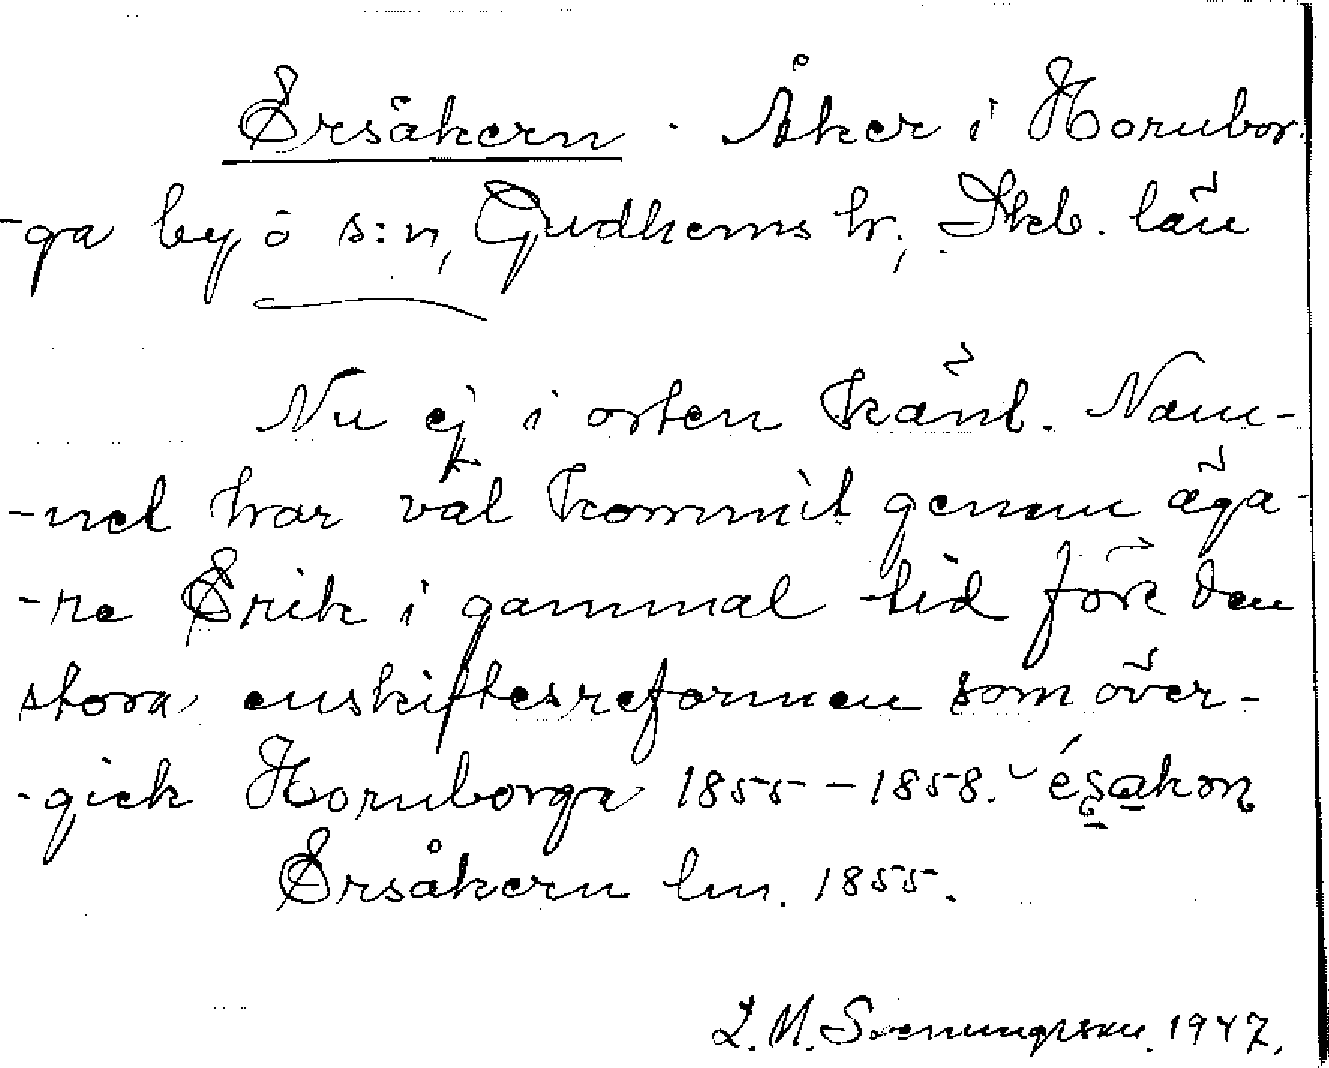 Ersåkern. Åker i Hornbor-
-ga by o s:n, Gudhems hr, Skb. län
Nu ej i orten känt. Nam-
-net har väl kommit genom äga-
-re Erik i gammal tid före den
stora enskiftesreformen som över-
-gick Hornborga 1855-1858.
Ersåkern lm. 1855.
L. M. Svenungsson. 1947.